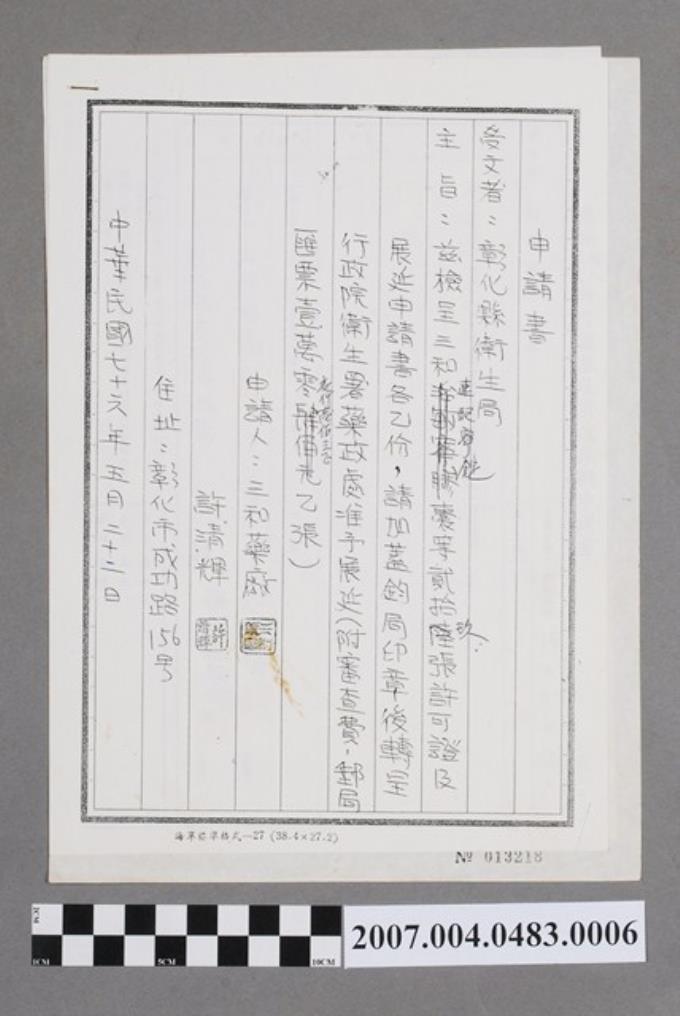 申請書
受文者：彰化縣衛生局
主 旨：茲檢呈三和膠囊等貳拾玖張許可證及
展延申請書各乙份，請加蓋鈞局印章後轉呈
行政院衛生署藥政處准予展延（附審查費．郵局
匯票壹萬零元乙張）
申請人：三和藥廠
許清輝
住址：彰化市成功路156号
中華民國七十六年五月二十二日
海軍標準格式—27 (38.4×27.2)
№ 013218
2CM
1CM
5CM
10CM
2007.004.0483.0006